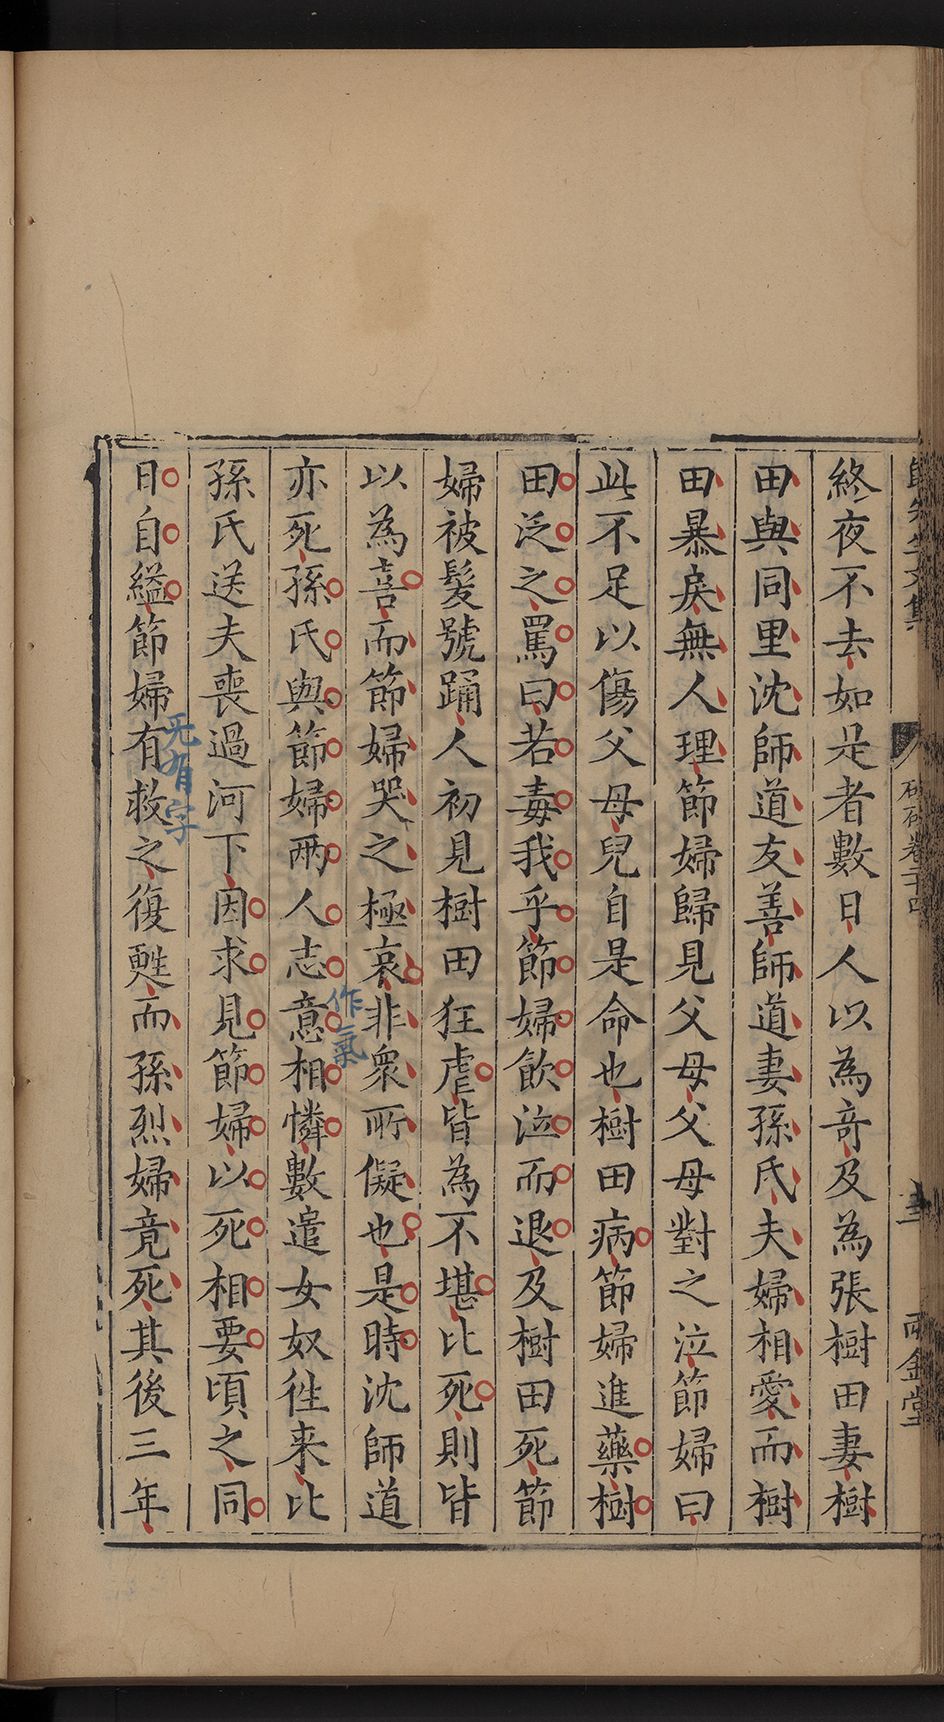 終夜不去如是者數日人以為竒及為張樹田妻樹
田與同里沈師道友善師道妻孫氏夫婦相愛而樹
田暴戾無人理節婦歸見父母父母對之泣節婦曰
此不足以傷父母兒自是命也樹田病節婦進藥樹
田泛之罵曰若毒我乎節婦飲泣而退及樹田死節
婦被髮號踊人初見樹田狂虐皆為不堪比死則皆
以為喜而節婦哭之極哀非衆所儗也是時沈師道
作氣
亦死孫氏與節婦兩人志意相憐數遣女奴徃来比
孫氏送夫喪過河下因求見節婦以死相要頃之同
无有字
日自縊節婦有救之復甦而孫烈婦竟死其後三年